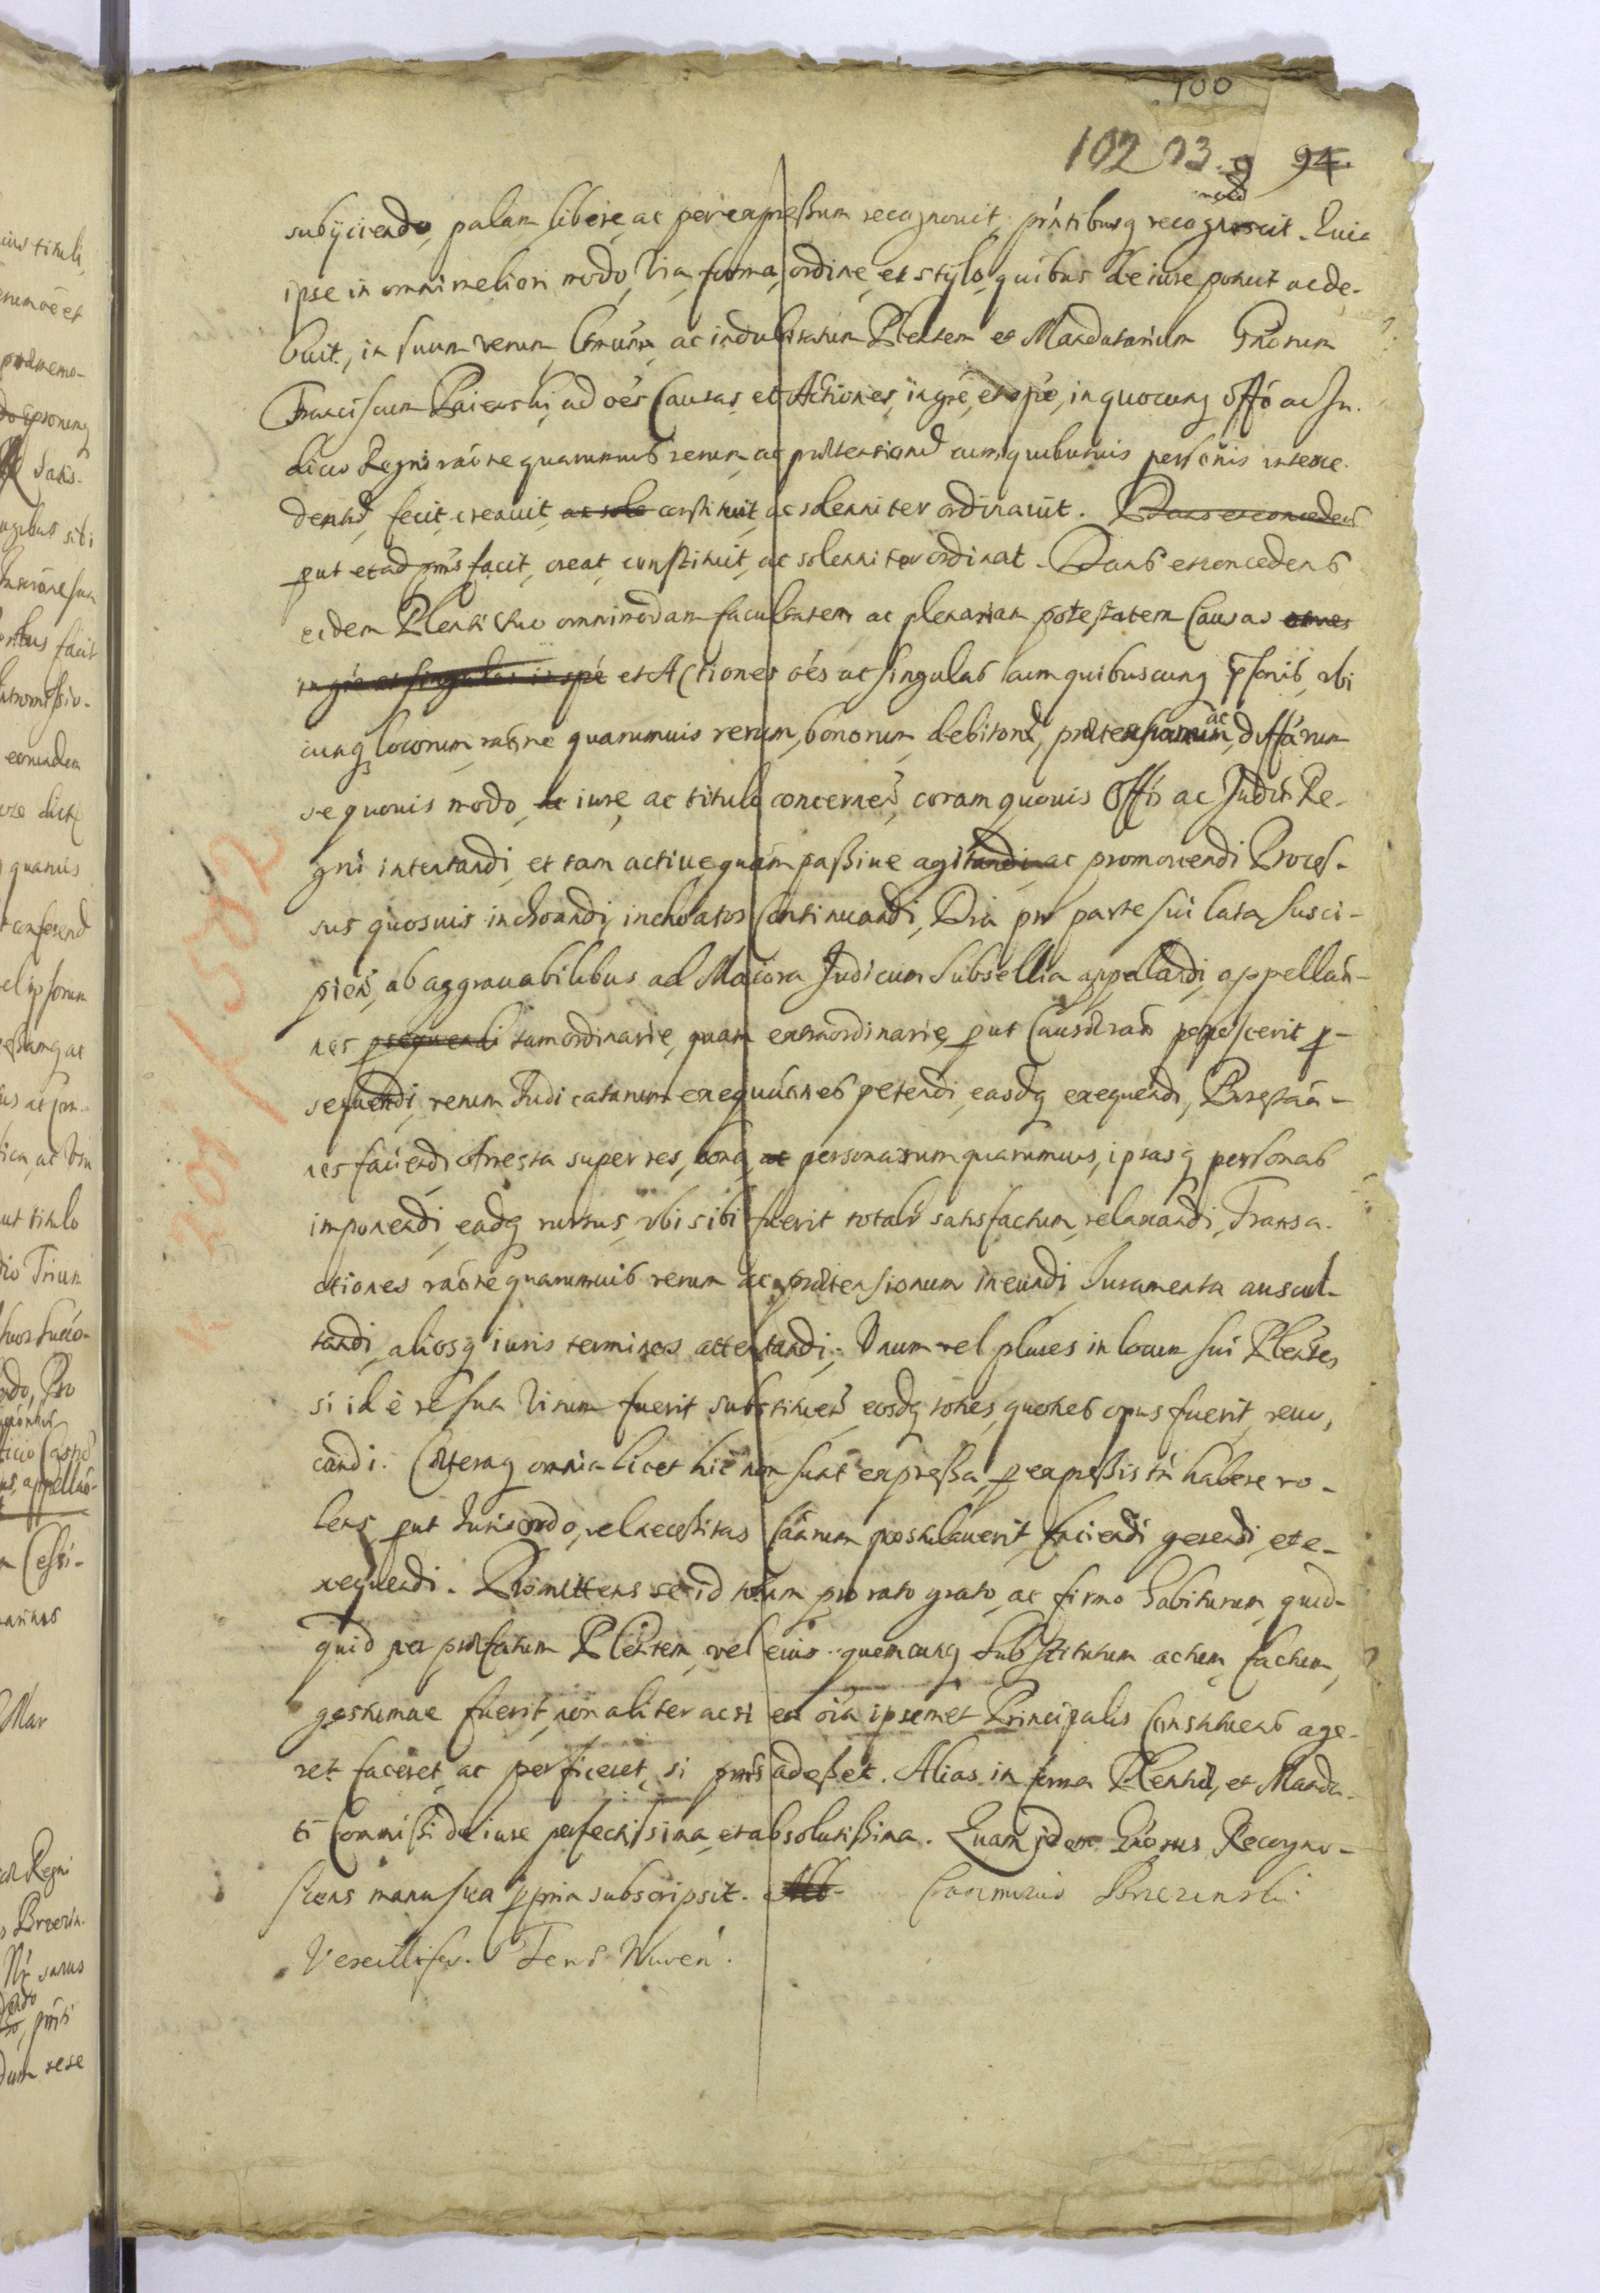 100
102 93. 9 94.
mod
subijciendo, palam libere, ac per expreßum recognouit, pñtibusq recognoscit. Quia
ipse in omni meliori modo, via, forma, ordine, et stylo, quibus de iure potuit ac de-
buit, in suum verum ltimum, ac indubitatum Plentem et Mandatarium Gnosum
Franciscum ad oés Causas, et Actiones, in gre, et spe, in quocunq Offo ac Ju-
dicio Regni raóne quarumuis rerum, ac prætensiond cum quibusuis personis interce-
dentid, fecit, creauit, ac sole constituit, ac solenniter ordinauit. Dans et conceden
put et ad pñs facit, creat, constituit, ac solenniter ordinat. Dans et concedens
eidem Plenti suo omnimodam facultatem ac plenariam potestatem Causas omnes
in gre et singulas in spé et Actiones oés ac singulas cum quibuscunq psonis, vbi
cunq locorum, raóne quarumuis rerum, bonorum, debitord, prætensionum, ac diffarum
se quouis modo, de iure, ac titulo concernen, coram quouis Offo ac Judio Re-
gni intentandi, et tam actiue quám paßiue agitandi ac promouendi Proces-
sus quosuis inchoandi, inchoatos continuandi, Dria pro parte sui lata susci-
pien, ab aggrauabilibus ad Maiora Judicium Subsellia appelandi, appellaó-
nes prosequendi tam ordinarie, quam extraordinarie, put Causæ poposcerit p-
sequendi, rerum Judicatarum exequuónes petendi, easdq exequendi,
nes faciendi, Arresta super res, bona, ac personarum quarumuis, ipsasq personas
imponendi, eadq rursus, vbi sibi fuerit totalr satisfactum, relaxandi, Transa-
ctiones raóne quarumuis rerum ac prætensionum ineundi, Juramenta auscul-
tandi, aliosq iuris terminos attentandi. Vnum vel plures in locum sui Plentes,
si id é re sua visum fuerit substituen, eosdq toties, quoties opus fuerit, reuo-
candi. Cæteraq omnia licet hic non sunt expreßa, p expreßis tñ habere vo-
lens, put Juris ordo, vel necessitas Cárum postulauerit, faciendi, gerendi, et e-
xequendi. Promittens se id totum pro rato grato, ac firmo habiturum, quid-
quid per præfatum Plentem, vel eius quemcunq Substitutum actum, factum,
gestumue fuerit, non aliter ac si ea oia ipsemet Principalis Constituens age-
ret, faceret, ac perficeret, si pñs adeßet. Alias in forma Plentid, et Manda-
ti Commißi de iure perfectissima, et absolutißima. Quam idem Gnosus Recogno-
scens manu sua ppria subscripsit. Casimirus Brzezinski
Vexillifer.